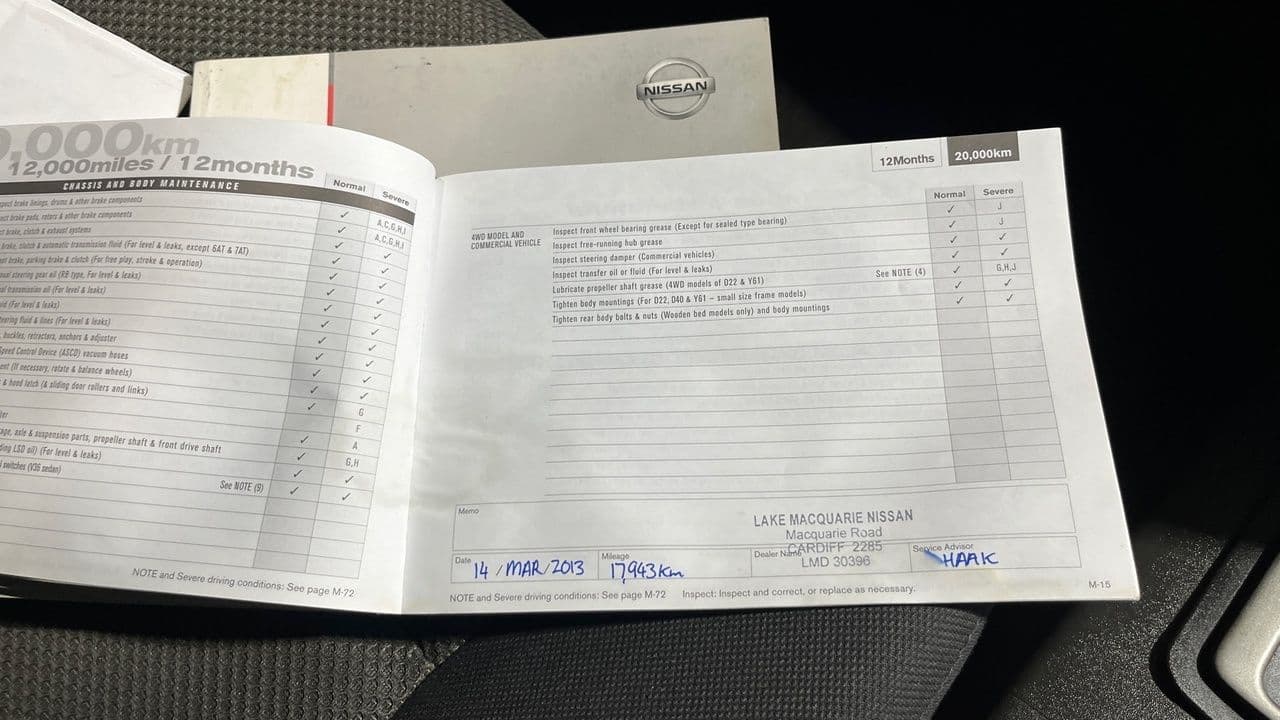 NISSAN
0,000km
12,000miles / 12months
CHASSIS AND BODY MAINTENANCE
Normal
Severe
spect brake linings, drums & other brake components ✓ A,C,G,H,I
ect brake pads, rotors & other brake components ✓ A,C,G,H,I
ct brake, clutch & exhaust systems ✓ ✓
brake, clutch & automatic transmission fluid (For level & leaks, except 6AT & 7AT) ✓ ✓
ot brake, parking brake & clutch (For free play, stroke & operation) ✓ ✓
steering gear oil (RB type, For level & leaks) ✓ ✓
al transmission oil (For level & leaks) ✓ ✓
(For level & leaks) ✓ ✓
eering fluid & lines (For level & leaks) ✓ ✓
, buckles, retractors, anchors & adjuster ✓ ✓
Speed Control Device (ASCD) vacuum hoses ✓ ✓
ent (If necessary, rotate & balance wheels) ✓ G
& hood latch (& sliding door rollers and links) ✓ F
A
age, axle & suspension parts, propeller shaft & front drive shaft ✓ G,H
ding LSD oil) (For level & leaks) ✓ ✓
switches (V36 sedan) See NOTE (9) ✓ ✓
NOTE and Severe driving conditions: See page M-72
12Months 20,000km
Normal Severe
4WD MODEL AND
COMMERCIAL VEHICLE
Inspect front wheel bearing grease (Except for sealed type bearing) ✓ J
Inspect free-running hub grease ✓ J
Inspect steering damper (Commercial vehicles) ✓ ✓
Inspect transfer oil or fluid (For level & leaks) ✓ ✓
Lubricate propeller shaft grease (4WD models of D22 & Y61) See NOTE (4) ✓ G,H,J
Tighten body mountings (For D22, D40 & Y61 – small size frame models) ✓ ✓
Tighten rear body bolts & nuts (Wooden bed models only) and body mountings ✓ ✓
Memo
LAKE MACQUARIE NISSAN
Macquarie Road
CARDIFF 2285
LMD 30396
Date 14 / MAR / 2013
Mileage 17,943km
Dealer Name
Service Advisor HAAK
NOTE and Severe driving conditions: See page M-72 Inspect: Inspect and correct, or replace as necessary.
M-15